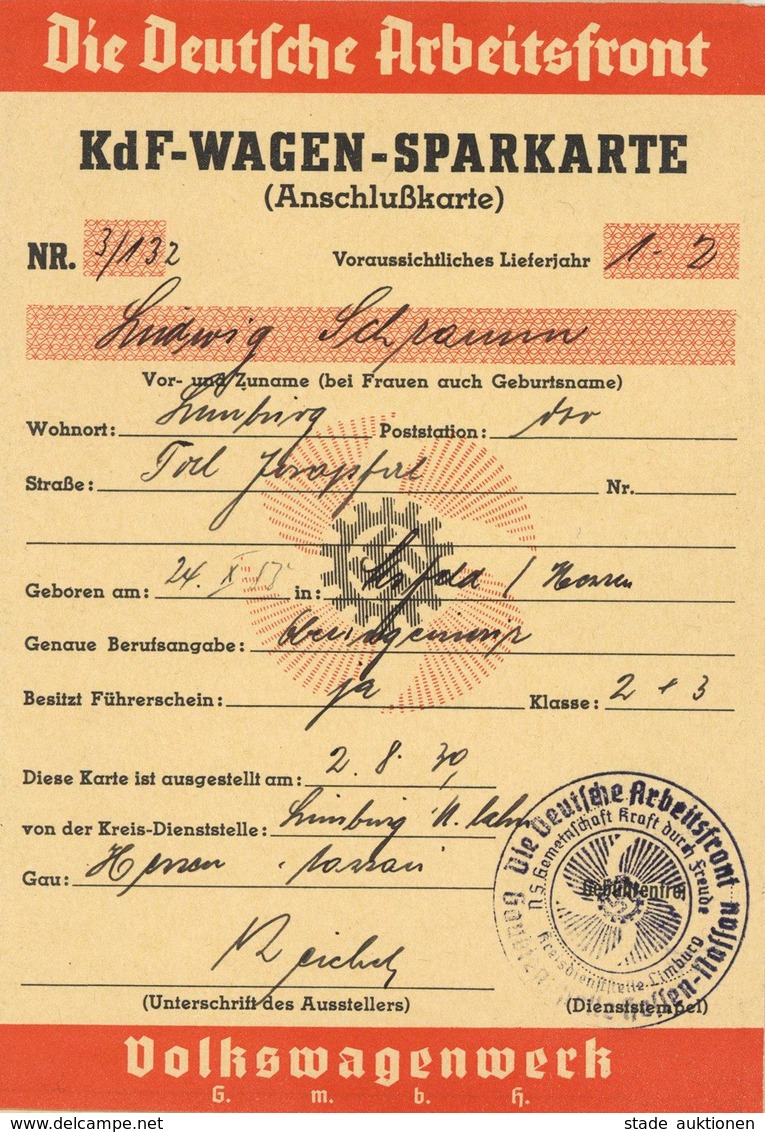 Die Deutsche Arbeitsfront
KdF-WAGEN-SPARKARTE
(Anschlußkarte)
NR. 3/132 Voraussichtliches Lieferjahr 1-2
Ludwig Schramm
Vor- und Zuname (bei Frauen auch Geburtsname)
Wohnort: Limburg Poststation: dto
Straße: Nr.
Geboren am: 24. X in: / Hessen
Genaue Berufsangabe: Oberingenieur
Besitzt Führerschein: ja Klasse: 2 + 3
Diese Karte ist ausgestellt am: 2. 8.
von der Kreis-Dienststelle: Limburg Lahn
Gau: Hessen Nassau
(Unterschrift des Ausstellers) (Dienststempel)
Die Deutsche Arbeitsfront
N.S. Gemeinschaft Kraft durch Freude
Gebührenfrei
Kreisdienststelle Limburg
Hessen-Nassau
Volkswagenwerk
G. m. b. H.
stade auktionen